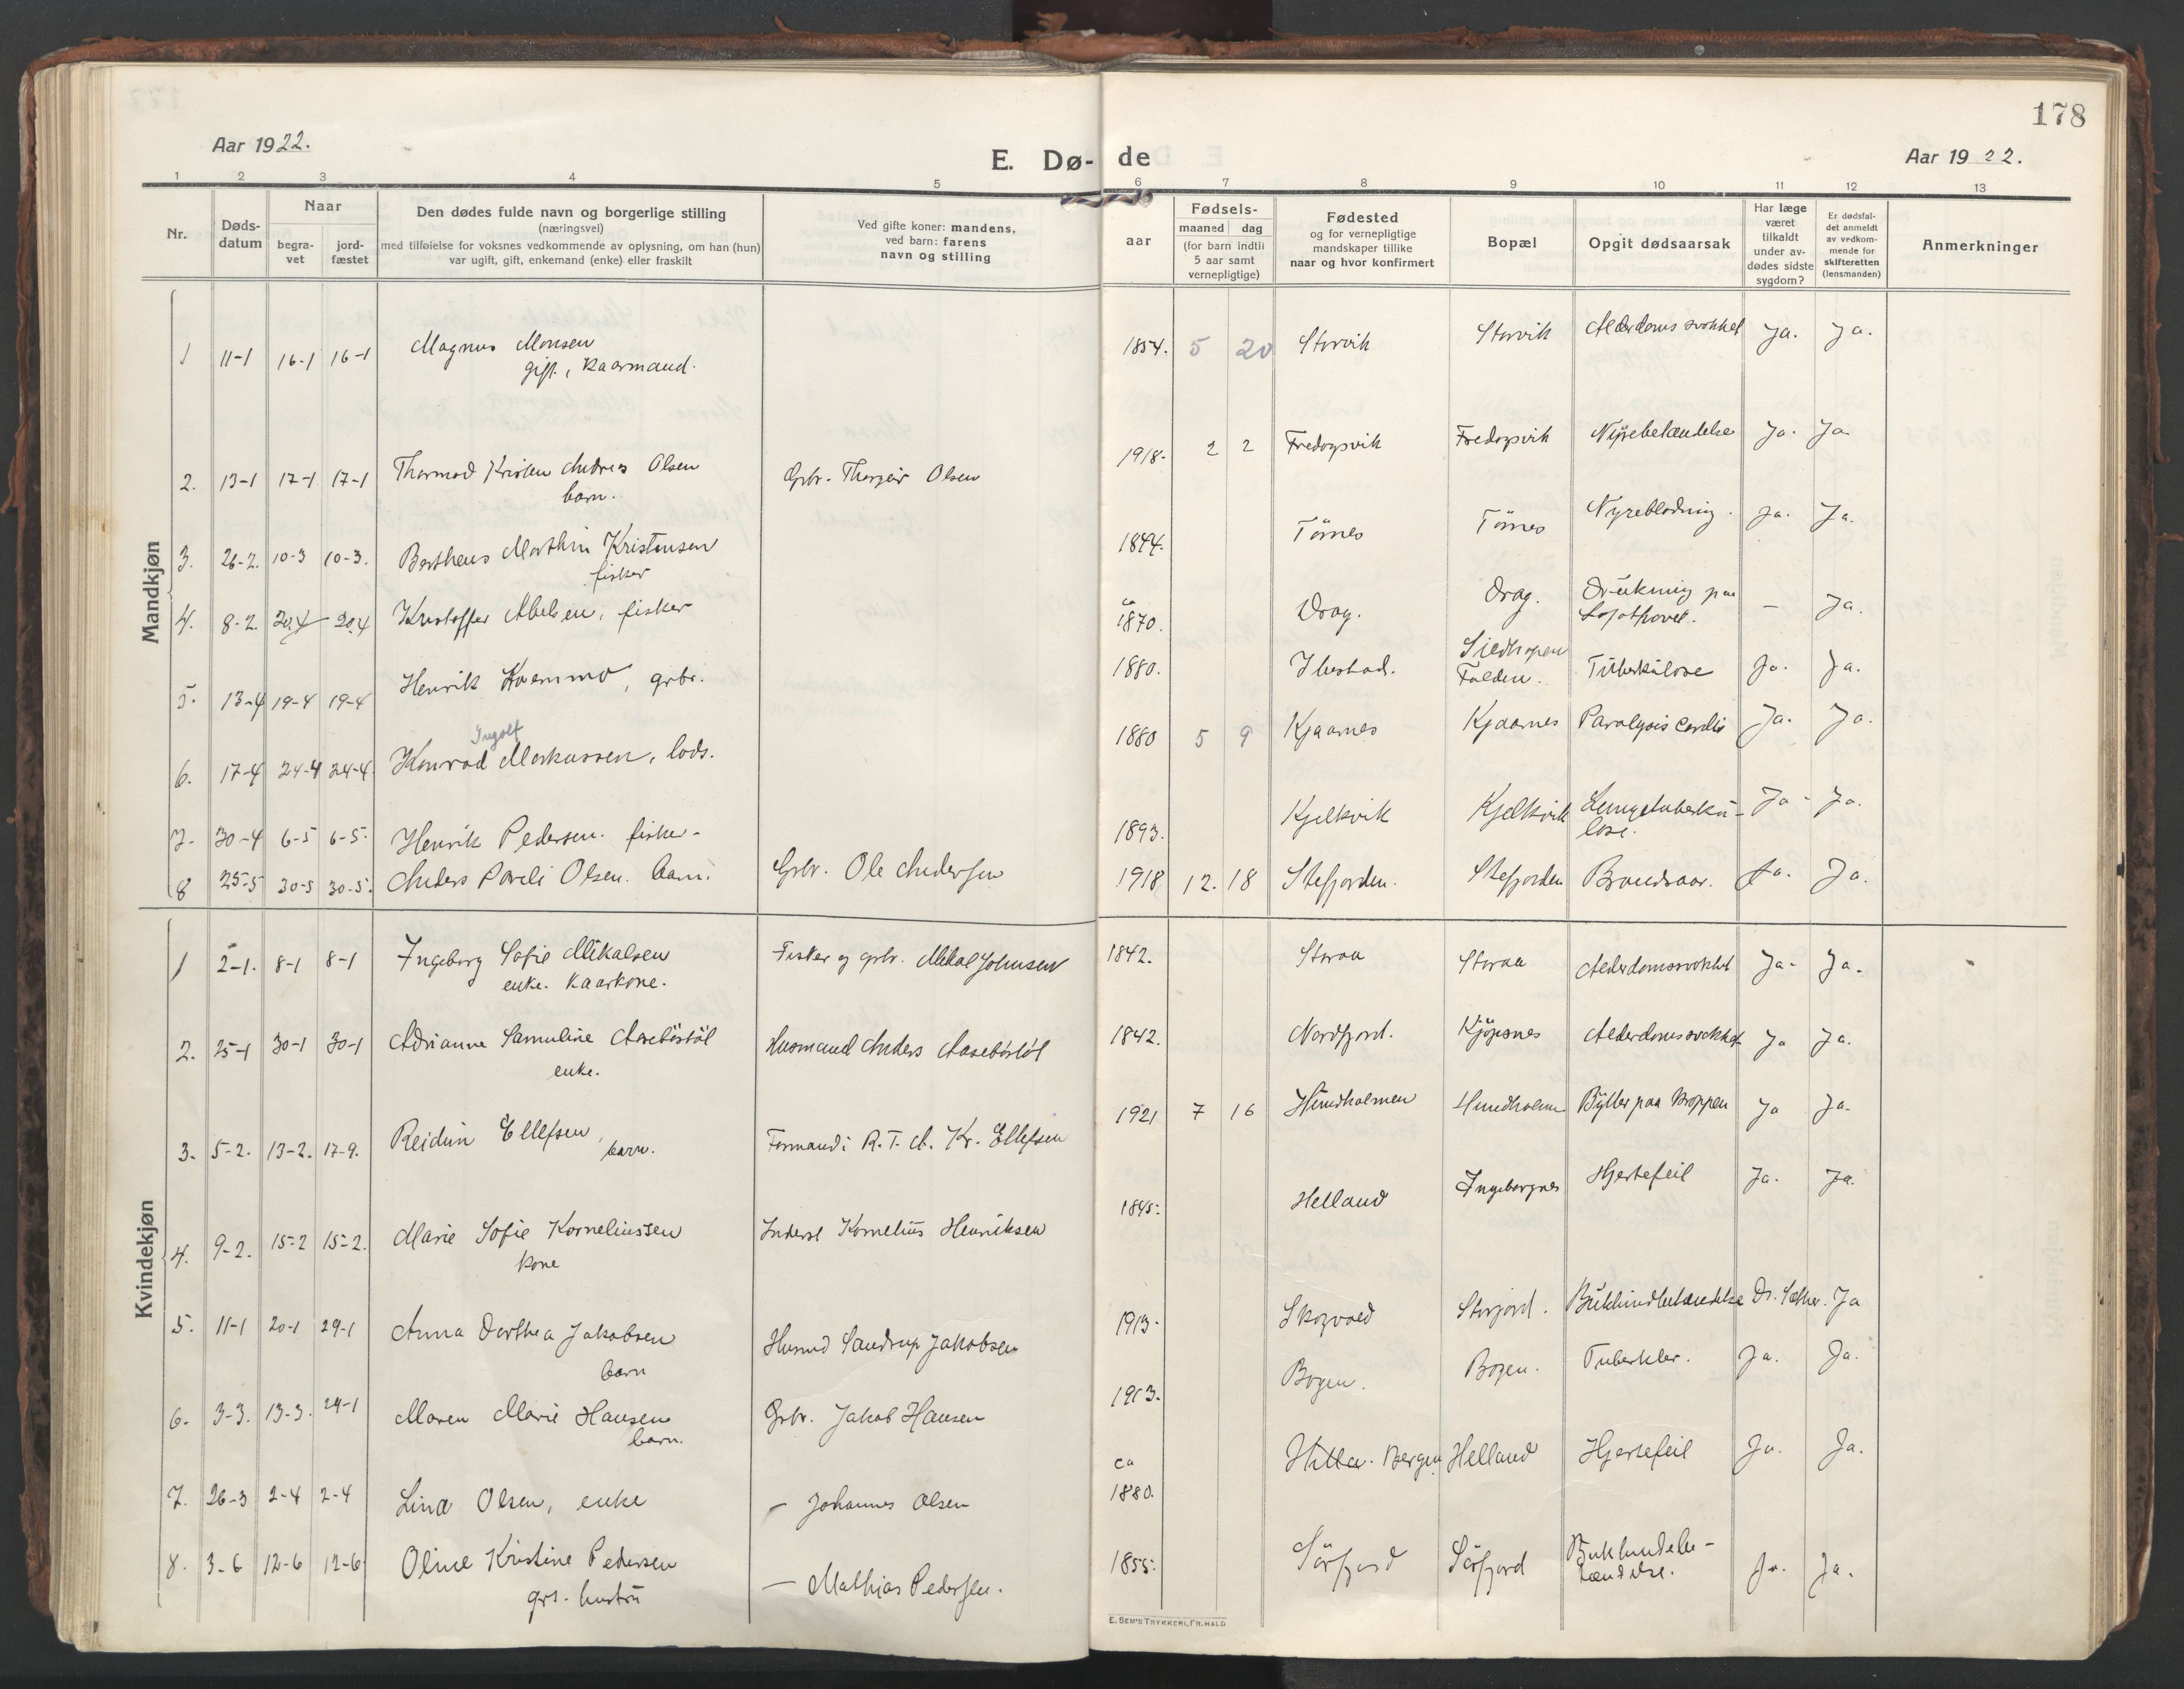 178
Aar 1922.
E. Dø- de
Aar 1922.
1 2 3 4 5 6 7 8 9 10 11 12 13
Nr.
Døds-
datum
Naar
begra-
vet
jord-
fæstet
Den dødes fulde navn og borgerlige stilling
(næringsvei)
med tilføielse for voksnes vedkommende av oplysning, om han (hun)
var ugift, gift, enkemand (enke) eller fraskilt
Ved gifte koner: mandens,
ved barn: farens
navn og stilling
aar
Fødsels-
maaned dag
(for barn indtil
5 aar samt
vernepligtige)
Fødested
og for vernepligtige
mandskaper tillike
naar og hvor konfirmert
Bopæl
Opgit dødsaarsak
Har læge
været
tilkaldt
under av-
dødes sidste
sygdom?
Er dødsfal-
det anmeldt
av vedkom-
mende for
skifteretten
(lensmanden)
Anmerkninger
Mandkjøn
1 11-1 16-1 16-1 Magnus Monsen 1854. 5 20 Storvik Storvik Alderdoms svakhet Ja. Ja.
gift, Kaarmand.
2. 13-1 17-1 17-1 Thormod Kristen Andreas Olsen Grbr. Thorgeir Olsen 1918. 2 2 Fredagsvik Fredagsvik Nyrebetændelse Ja. Ja
barn.
3. 26-2. 10-3 10-3. Bertheus Marthin Kristensen 1844. Tömes Tömes Nyreblødning. Ja. Ja.
fisker
4. 8-2. 20.4 20.4 Kristoffer Abelsen, fisker ca 1870. Drag. Drag. Drukning paa
Lofothavet. - Ja.
5. 13-4 19-4 19-4 Henrik Kvemmo, grbr. 1880. Ibestad. Sildhopen
Folden. Tuberkulose Ja. Ja.
Ingolf
6. 17-4 24-4 24-4 Konrad Markussen, lods. 1880 5 9 Kjaarnes Kjaarnes Paralysis cordis Ja. Ja.
7. 30-4 6-5 6-5. Henrik Pedersen. fisker- 1893. Kjelkvik Kjelkvik Lungetuberku-
lose. Ja- Ja.
8 25-5 30-5 30-5. Anders Pareli Olsen. barn. Grbr. Ole Andersen 1918 12. 18 Stefjorden. Stefjorden Brandsaar. Ja. Ja.
Kvindekjøn
1 2-1. 8-1 8-1 Ingeborg Sofie Mikalsen Fisker og grbr. Mikal Johnsen 1842. Storaa Storaa Alderdomssvakhet Ja- Ja.
enke. Kaarkone.
2. 25-1 30-1 30-1 Adrianne Samuline Aasebøstøl Husmand Anders Aasebøstøl 1842. Nordfjord. Kjöpsnes Alderdomssvakhet Ja Ja.
enke.
3. 5-2. 13-2. 17-9. Reidun Ellefsen, Formand i R.T.A. Kr. Ellefsen 1921 7 16 Hundholmen Hundholmen Byller paa kroppen Ja Ja.
barn.
4. 9-2. 15-2 15-2. Marie Sofie Korneliussen Inderst Kornelius Henriksen 1845. Helland Ingeborgnes Hjertefeil Ja. Ja.
kone
5. 11-1 20-1 29-1 Anna Dorthea Jakobsen Husmd Sandrup Jakobsen 1913. Skogvoed Storjord. Bukhindebetændelse Dr. Sæther. Ja
barn
6. 3-3. 13-3. 29-1 Maren Marie Hansen Grbr. Jakob Hansen 1913. Bogen. Bogen. Tuberkler. Ja. Ja.
barn.
7. 26-3 2-4 2-4 Lina Olsen, enke - Johannes Olsen ca
1880. Bergen Helland Hjertefeil Ja. Ja.
8. 3-6 12-6 12-6 Oline Kristine Pedersen - Mathias Pedersen. 1855. Sörfjord Sörfjord Bukhindebe-
tændelse. Ja. Ja.
grs. hustru
E. SEM'S TRYKKERI, FR.HALD